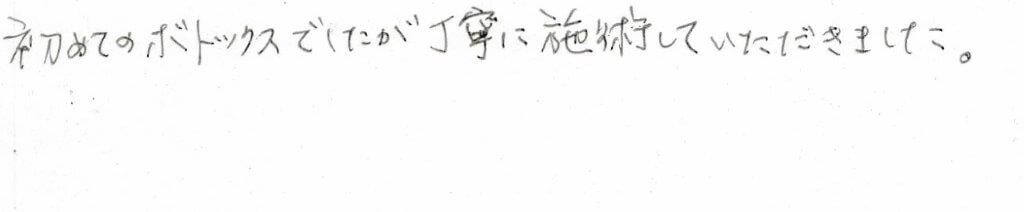 初めてのボトックスでしたが丁寧に施術していただきました。